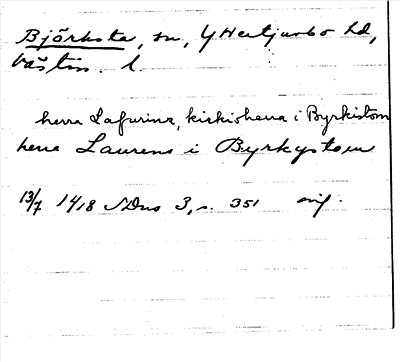 Björksta, sn, Y Tjurbo hd,
Västm. l.
herra Lafurins, kirkiohera i Byrkistom
herra Laurens i Byrkystom
13/7 1418 SDns 3, s. 351 orig.